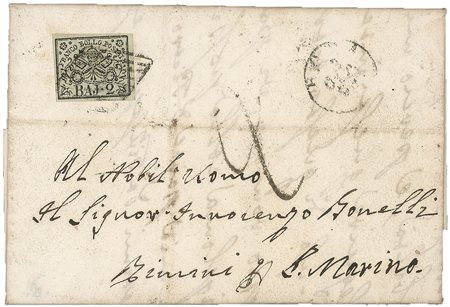 FRANCO BOLLO POSTALE
BAJ. 2
2
Al Nobil Uomo
Il Signor Innocenzo Bonelli
Rimini p S. Marino.